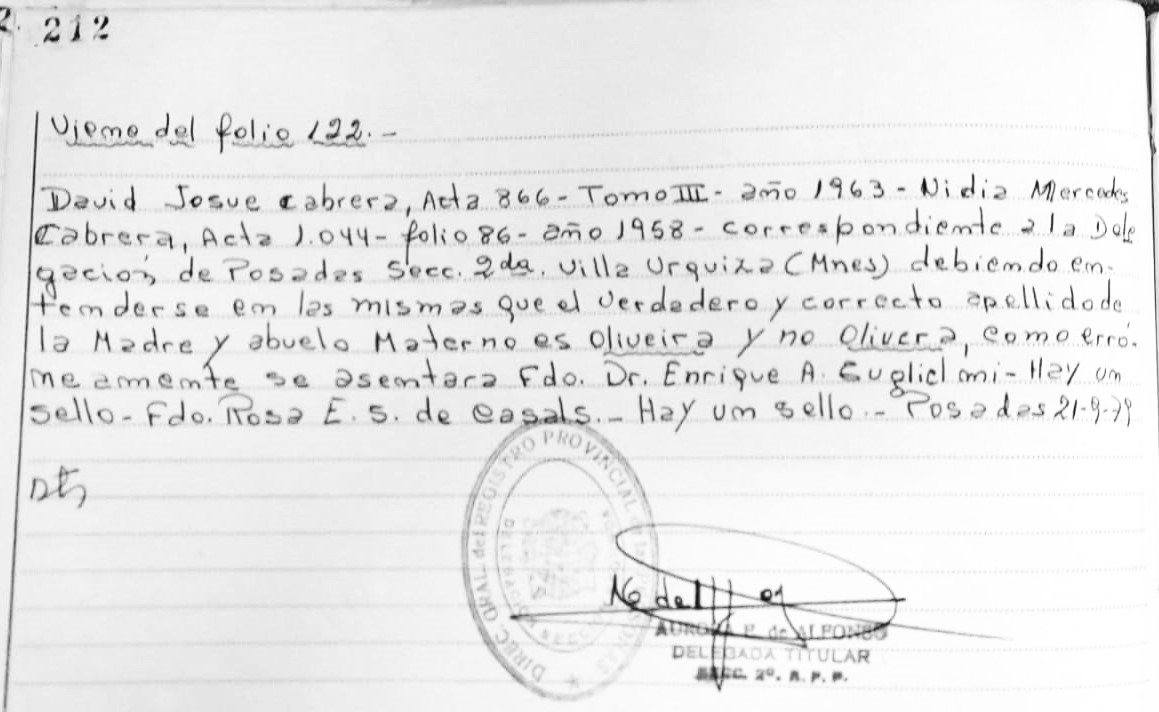 212
Viene del folio 122.-
David Josue Cabrera, Acta 866- Tomo III- año 1963- Nidia Mercedes
Cabrera, Acta 1.044- folio 86- año 1958- correspondiente a la Dele
gación de Posadas Secc. 2da. Villa Urquiza (Mnes) debiendo en-
tenderse en las mismas que el verdadero y correcto apellido de
la Madre y abuelo Materno es Oliveira y no Olivera, como erró-
neamente se asentara Fdo. Dr. Enrique A. Gugliel mi- Hay un
sello- Fdo. Rosa E. S. de Casals.- Hay un sello.- Posadas 21-9-79
DIREC. GRAL. del REGISTRO PROVINCIAL de las
AURORA E. de ALFONSO
DELEGADA TITULAR
SECC. 2º. R. P. P.